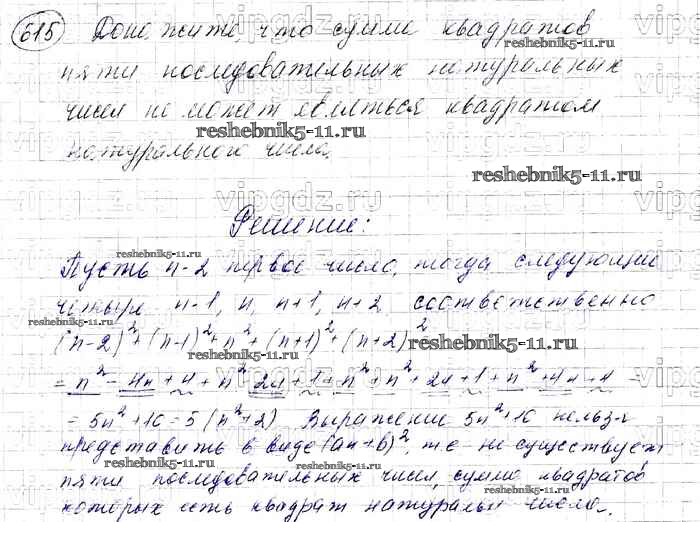 615 Докажите, что сумма квадратов
пяти последовательных натуральных
чисел не может являться квадратом
reshebnik5-11.ru
натурального числа.
reshebnik5-11.ru
Решение:
reshebnik5-11.ru
Пусть n-2 первое число, тогда следующие
четыре n-1, n, n+1, n+2 соответственно
reshebnik5-11.ru
(n-2)²+(n-1)²+n²+(n+1)²+(n+2)²
reshebnik5-11.ru
= n²-4n+4+n² 2n+1+n²+n²+2n+1+n²+4n+4 -
reshebnik5-11.ru
= 5n²+10=5(n²+2) Выражение 5n²+10 нельзя
reshebnik5-11.ru
представить в виде (an+b)², т.е. не существует
пяти последовательных чисел, сумма квадратов
reshebnik5-11.ru
которых есть квадрат натуральн числа.
reshebnik5-11.ru
vipgdz.ru